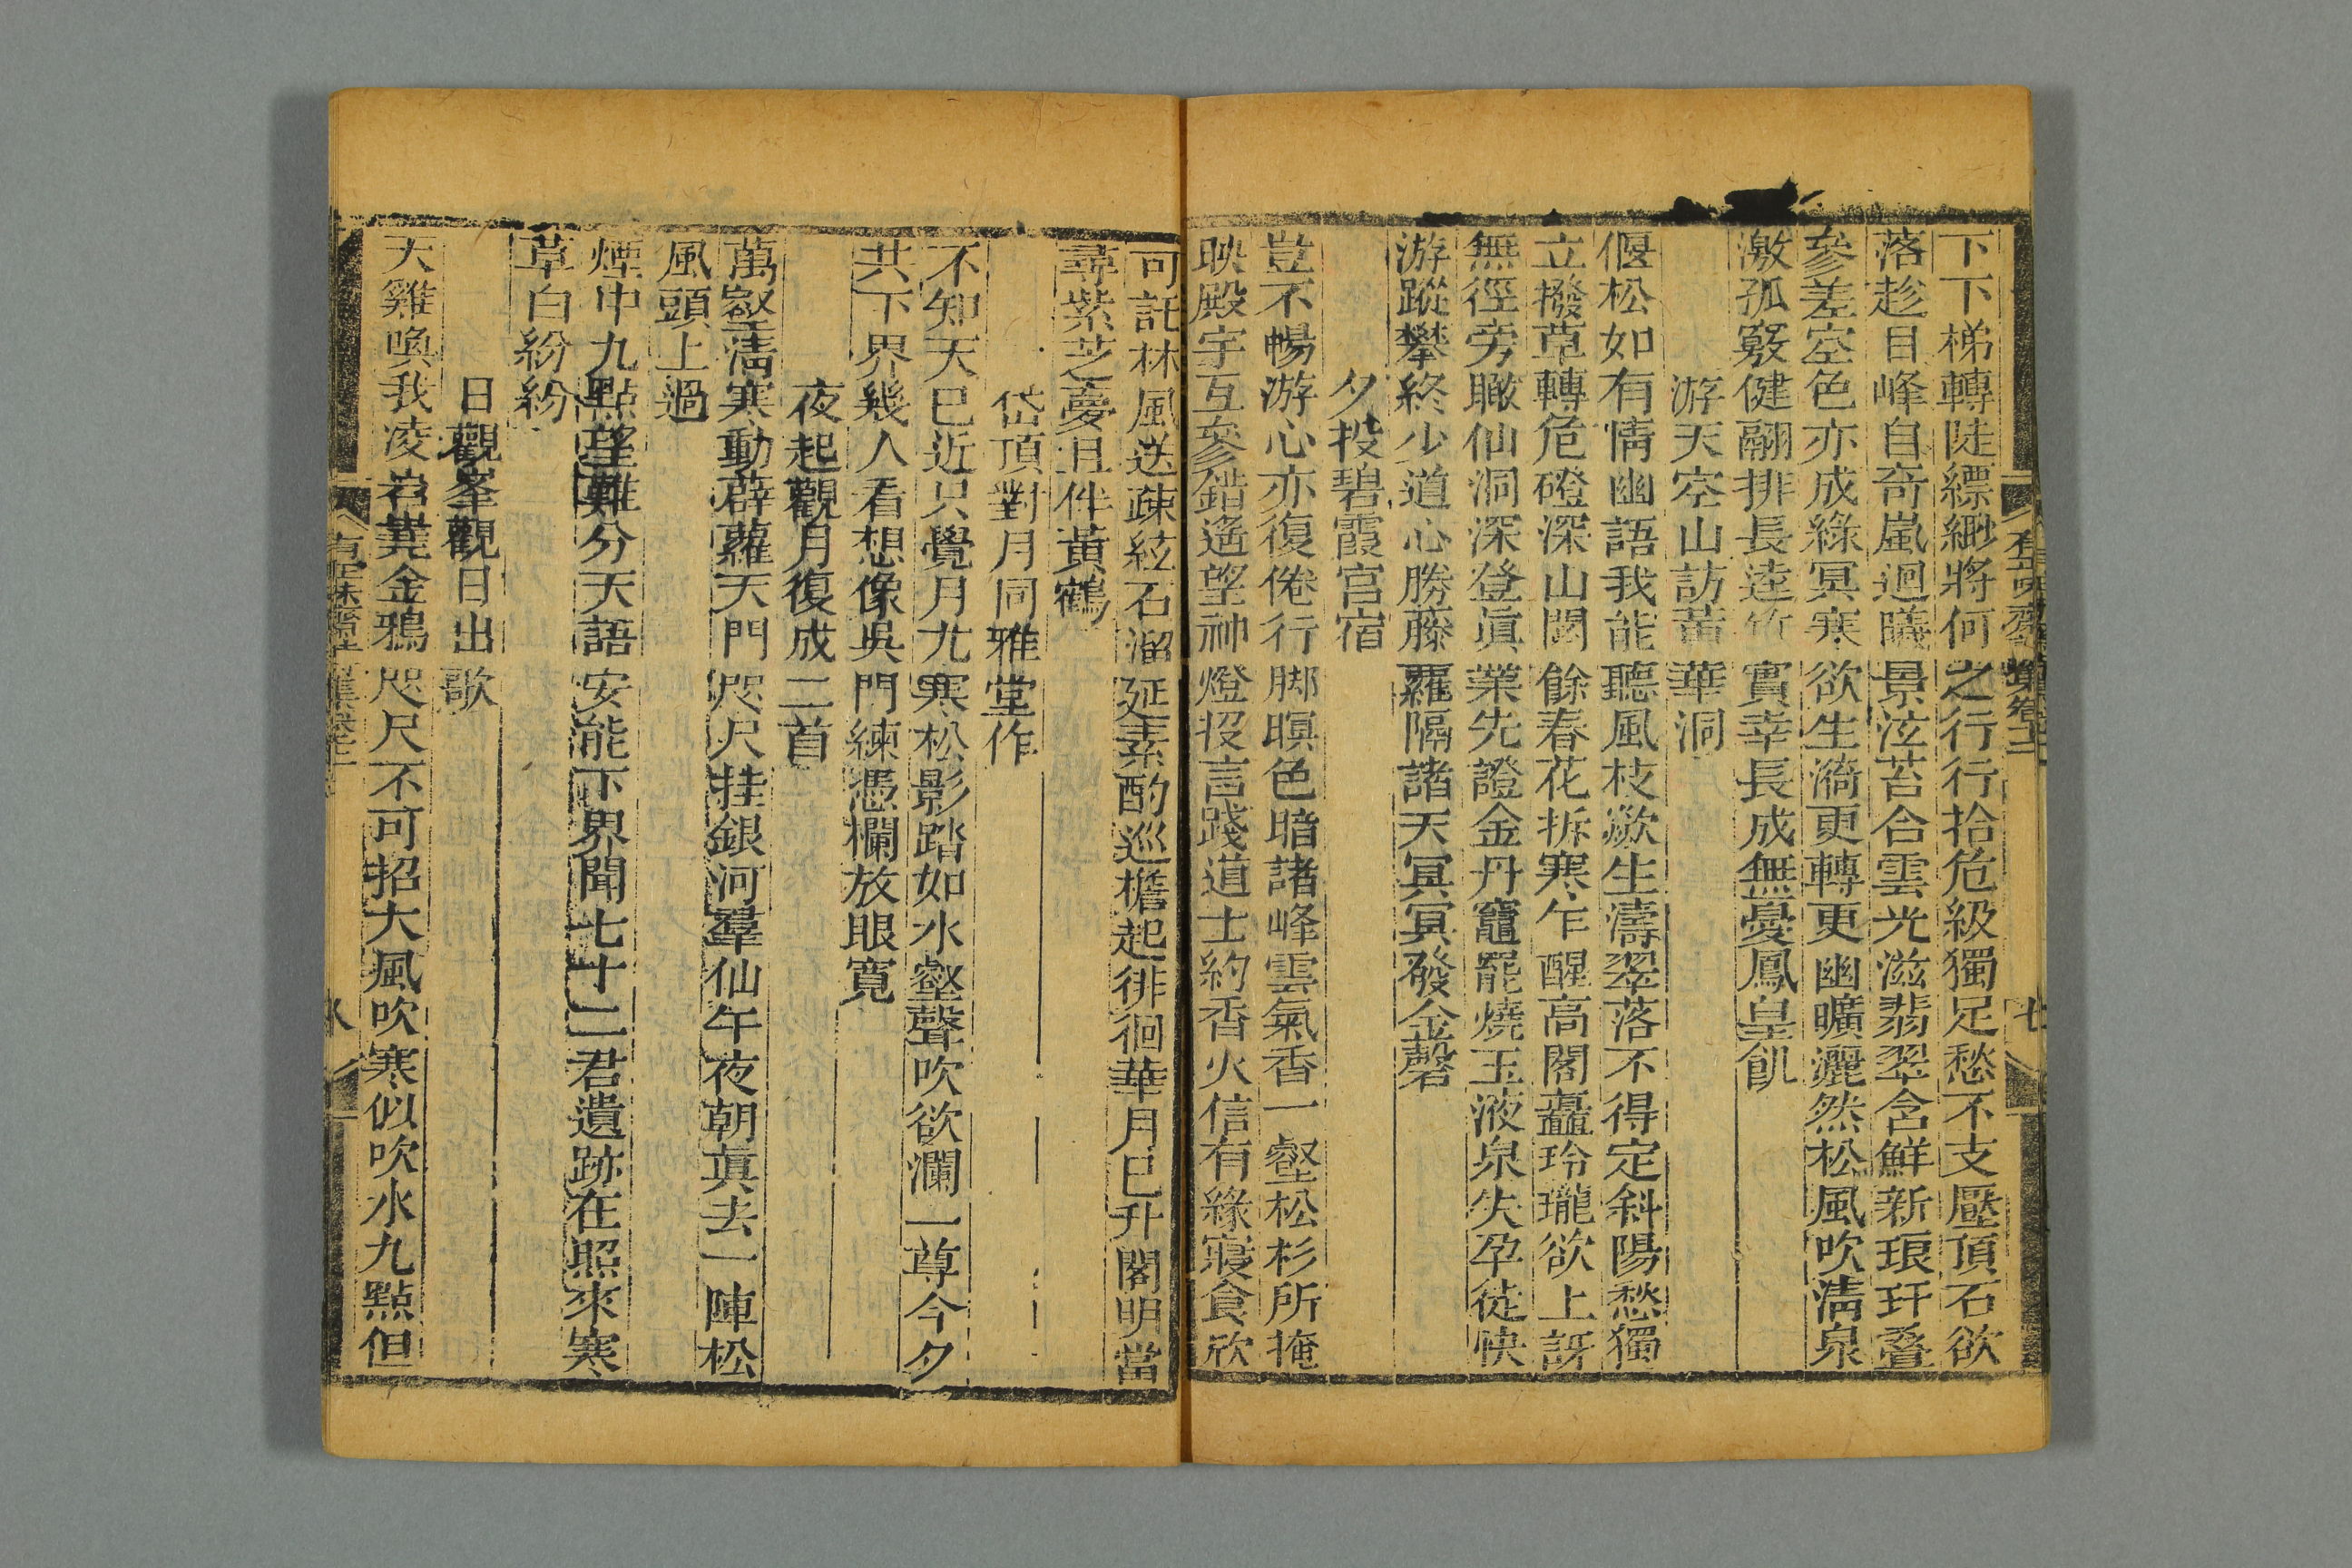 下下梯轉陡縹緲將何之行行拾危級獨足愁不支壓頂石欲
落趁目峰自奇嵐迴曦景泣苔合雲光滋翡翠含鮮新琅玕疊
參差空色亦成綠冥寒欲生漪更轉更幽曠灑然松風吹清泉
激孤竅健翮排長逵竹實幸長成無憂鳳皇飢
游天空山訪黃華洞
偃松如有情幽語我能聽風枝歘生濤翠落不得定斜陽愁獨
立撥草轉危磴深山閟餘春花拆寒乍醒高閣矗玲瓏欲上訝
無徑旁瞰仙洞深登眞業先證金丹竈罷燒玉液泉失孕徒快
游蹤攀終少道心勝藤蘿隔諸天冥冥發金磬
夕投碧霞宮宿
豈不暢游心亦復倦行脚暝色暗諸峰雲氣香一壑松杉所掩
映殿宇互參錯遙望神燈投言踐道士約香火信有緣寢食欣
可託林風送疎絃石溜延素酌巡檐起徘徊華月已升閣明當
尋紫芝憂且伴黃鶴
岱頂對月同雅堂作
不知天已近只覺月尤寒松影踏如水壑聲吹欲瀾一尊今夕
共下界幾人看想像吳門練憑欄放眼寬
夜起觀月復成二首
萬壑淸寒動薜蘿天門咫尺挂銀河羣仙午夜朝眞去一陣松
風頭上過
煙中九點望難分天語安能下界聞七十二君遺跡在照來寒
草白紛紛
日觀峯觀日出歌
天雞喚我凌岧嶤金鴉咫尺不可招大風吹寒似吹水九點但
七